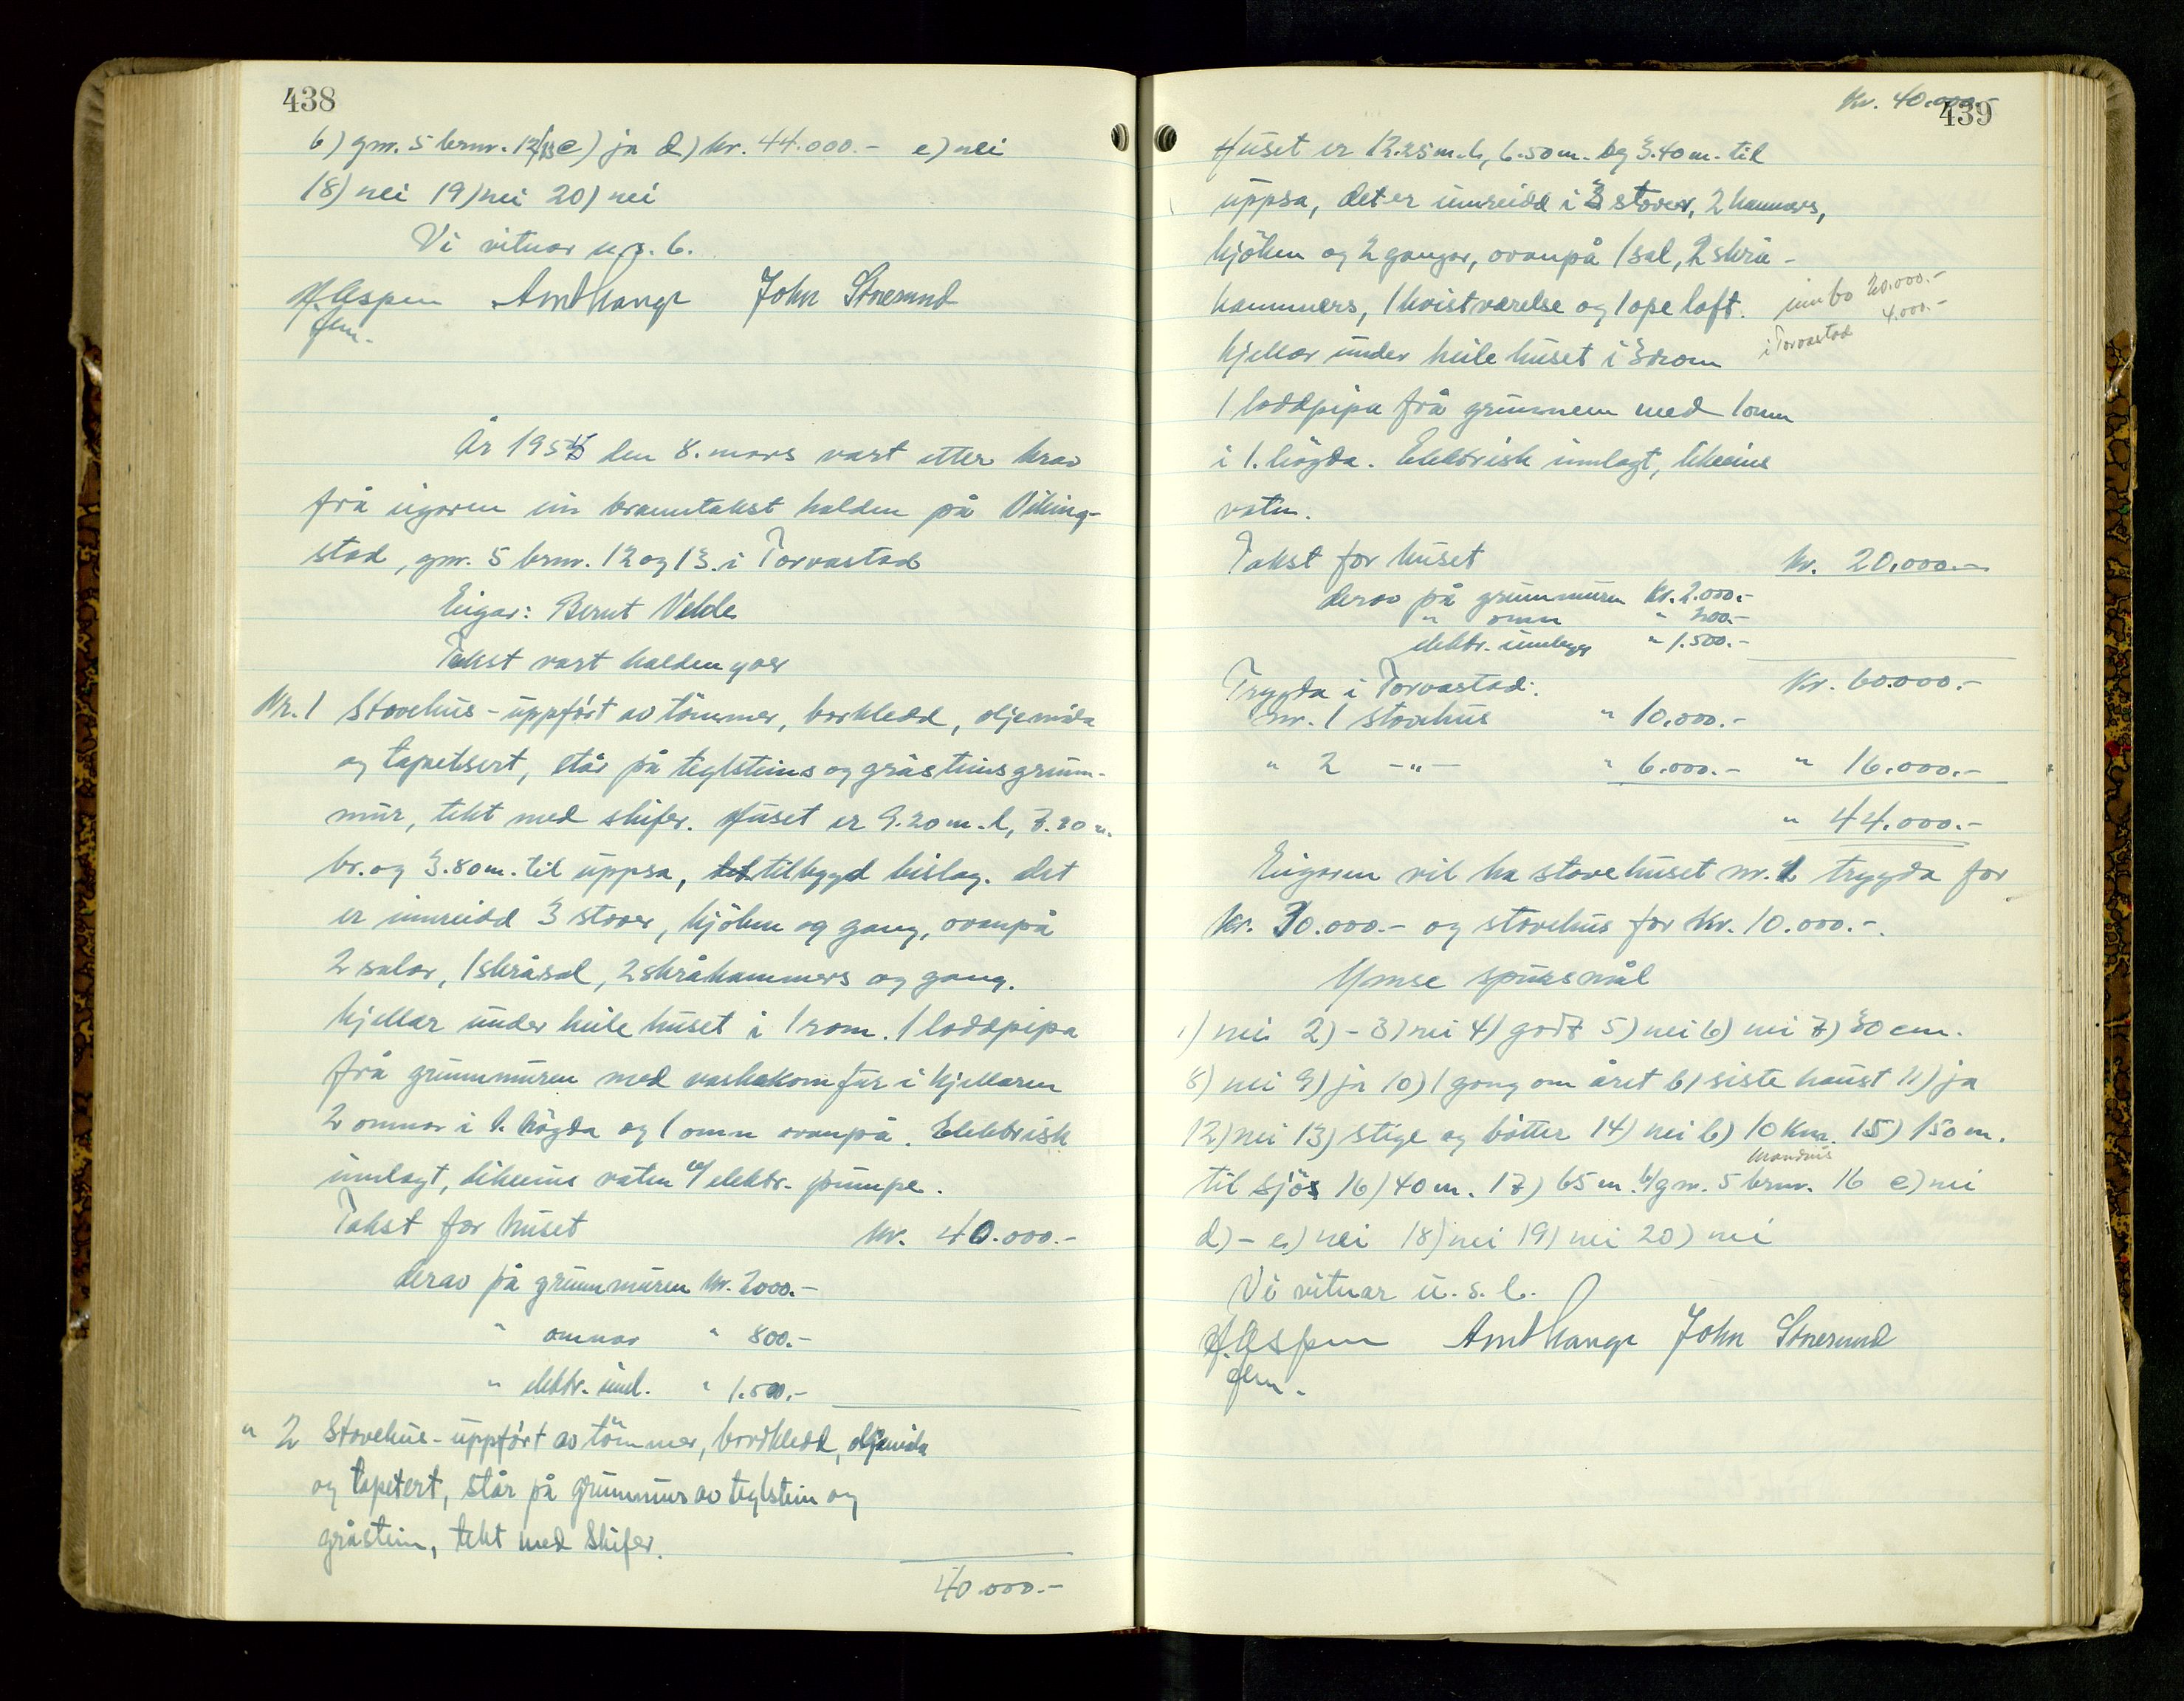 438
b) gnr. 5 brnr. 12/13 c) ja d) kr. 44.000.- e) nei
18) nei 19) nei 20) nei
Vi vitnar u. s. b.
H. Aspen Arnt Hauge John Storesund
fm.
År 1955 den 8. mars vart etter krav
frå eigaren ein branntakst halden på Viking-
stad, gnr. 5 brnr. 12 og 13 i Torvastad
Eigar: Bernt Velde
Takst vart halden yver
Nr. 1 Stovehus - uppført av tömmer, borkledd, oljemåla
og tapetsert, står på teglsteins og gråsteins grunn-
mur, tekt med skifer. Huset er 9.20 m. l, 7.20 m.
br. og 3.80 m. til uppsa, tilbygd bislag. det
er innreidd 3 stover, kjöken og gang, ovanpå
2 salar, 1 skråsal, 2 skråkammers og gang.
Kjellar under heile huset i 1 rom. 1 loddpipa
frå grunnmuren med vaskekomfur i kjellaren
2 omnar i 1. högda og 1 omn ovanpå. Elektrisk
innlagt, likeeins vatn m/ elektr. pumpe.
Takst for huset kr. 40.000.-
derav på grunnmuren kr. 2000.-
" omnar " 800.-
" elektr. innl. " 1.500.-
" 2 Stovehus - uppført av tömmer, bordkledd, oljemåla
og tapetert, står på grunnmur av teglstein og
gråstein, tekt med Skifer.
40.000.-
439
Kr. 40.000.-
Huset er 12.25 m. l, 6.50 m. b og 3.40 m. til
uppsa, det er innreidd i 3 stover, 2 kammers,
kjöken og 2 gangar, ovanpå 1 sal, 2 skrå-
kammers, 1 kvistværelse og 1 ope loft.
innbo 20.000.-
i Torvastad 4.000.-
Kjellar under heile huset i 3 rom
1 loddpipa frå grunnen med 1 omn
i 1. högda. Elektrisk innlagt, likeeins
vatn.
Takst for huset kr. 20.000.-
derav på grunnmuren kr. 2.000.-
" omn " 200.-
elektr. innlegg " 1.500.-
Kr. 60.000.-
Trygda i Torvastad:
nr. 1 stovehus " 10.000.-
" 2 -"- " 6.000.- " 16.000.-
" 44.000.-
Eigaren vil ha stovehuset nr. 1 trygda for
kr. 30.000.- og stovehus for kr. 10.000.-.
Ymse spursmål
1) nei 2) - 3) nei 4) godt 5) nei 6) nei 7) 30 cm.
8) nei 9) ja 10) 1 gong om året b) siste haust 11) ja
12) nei 13) stige og bötter 14) nei b) 10 km. 15) 150 m.
til sjös 16) 40 m. 17) 65 m. b) gnr. 5 brnr. 16 c) nei
d) - e) nei 18) nei 19) nei 20) nei
Vi vitnar u. s. b.
H. Aspen Arnt Hauge John Storesund
fm.